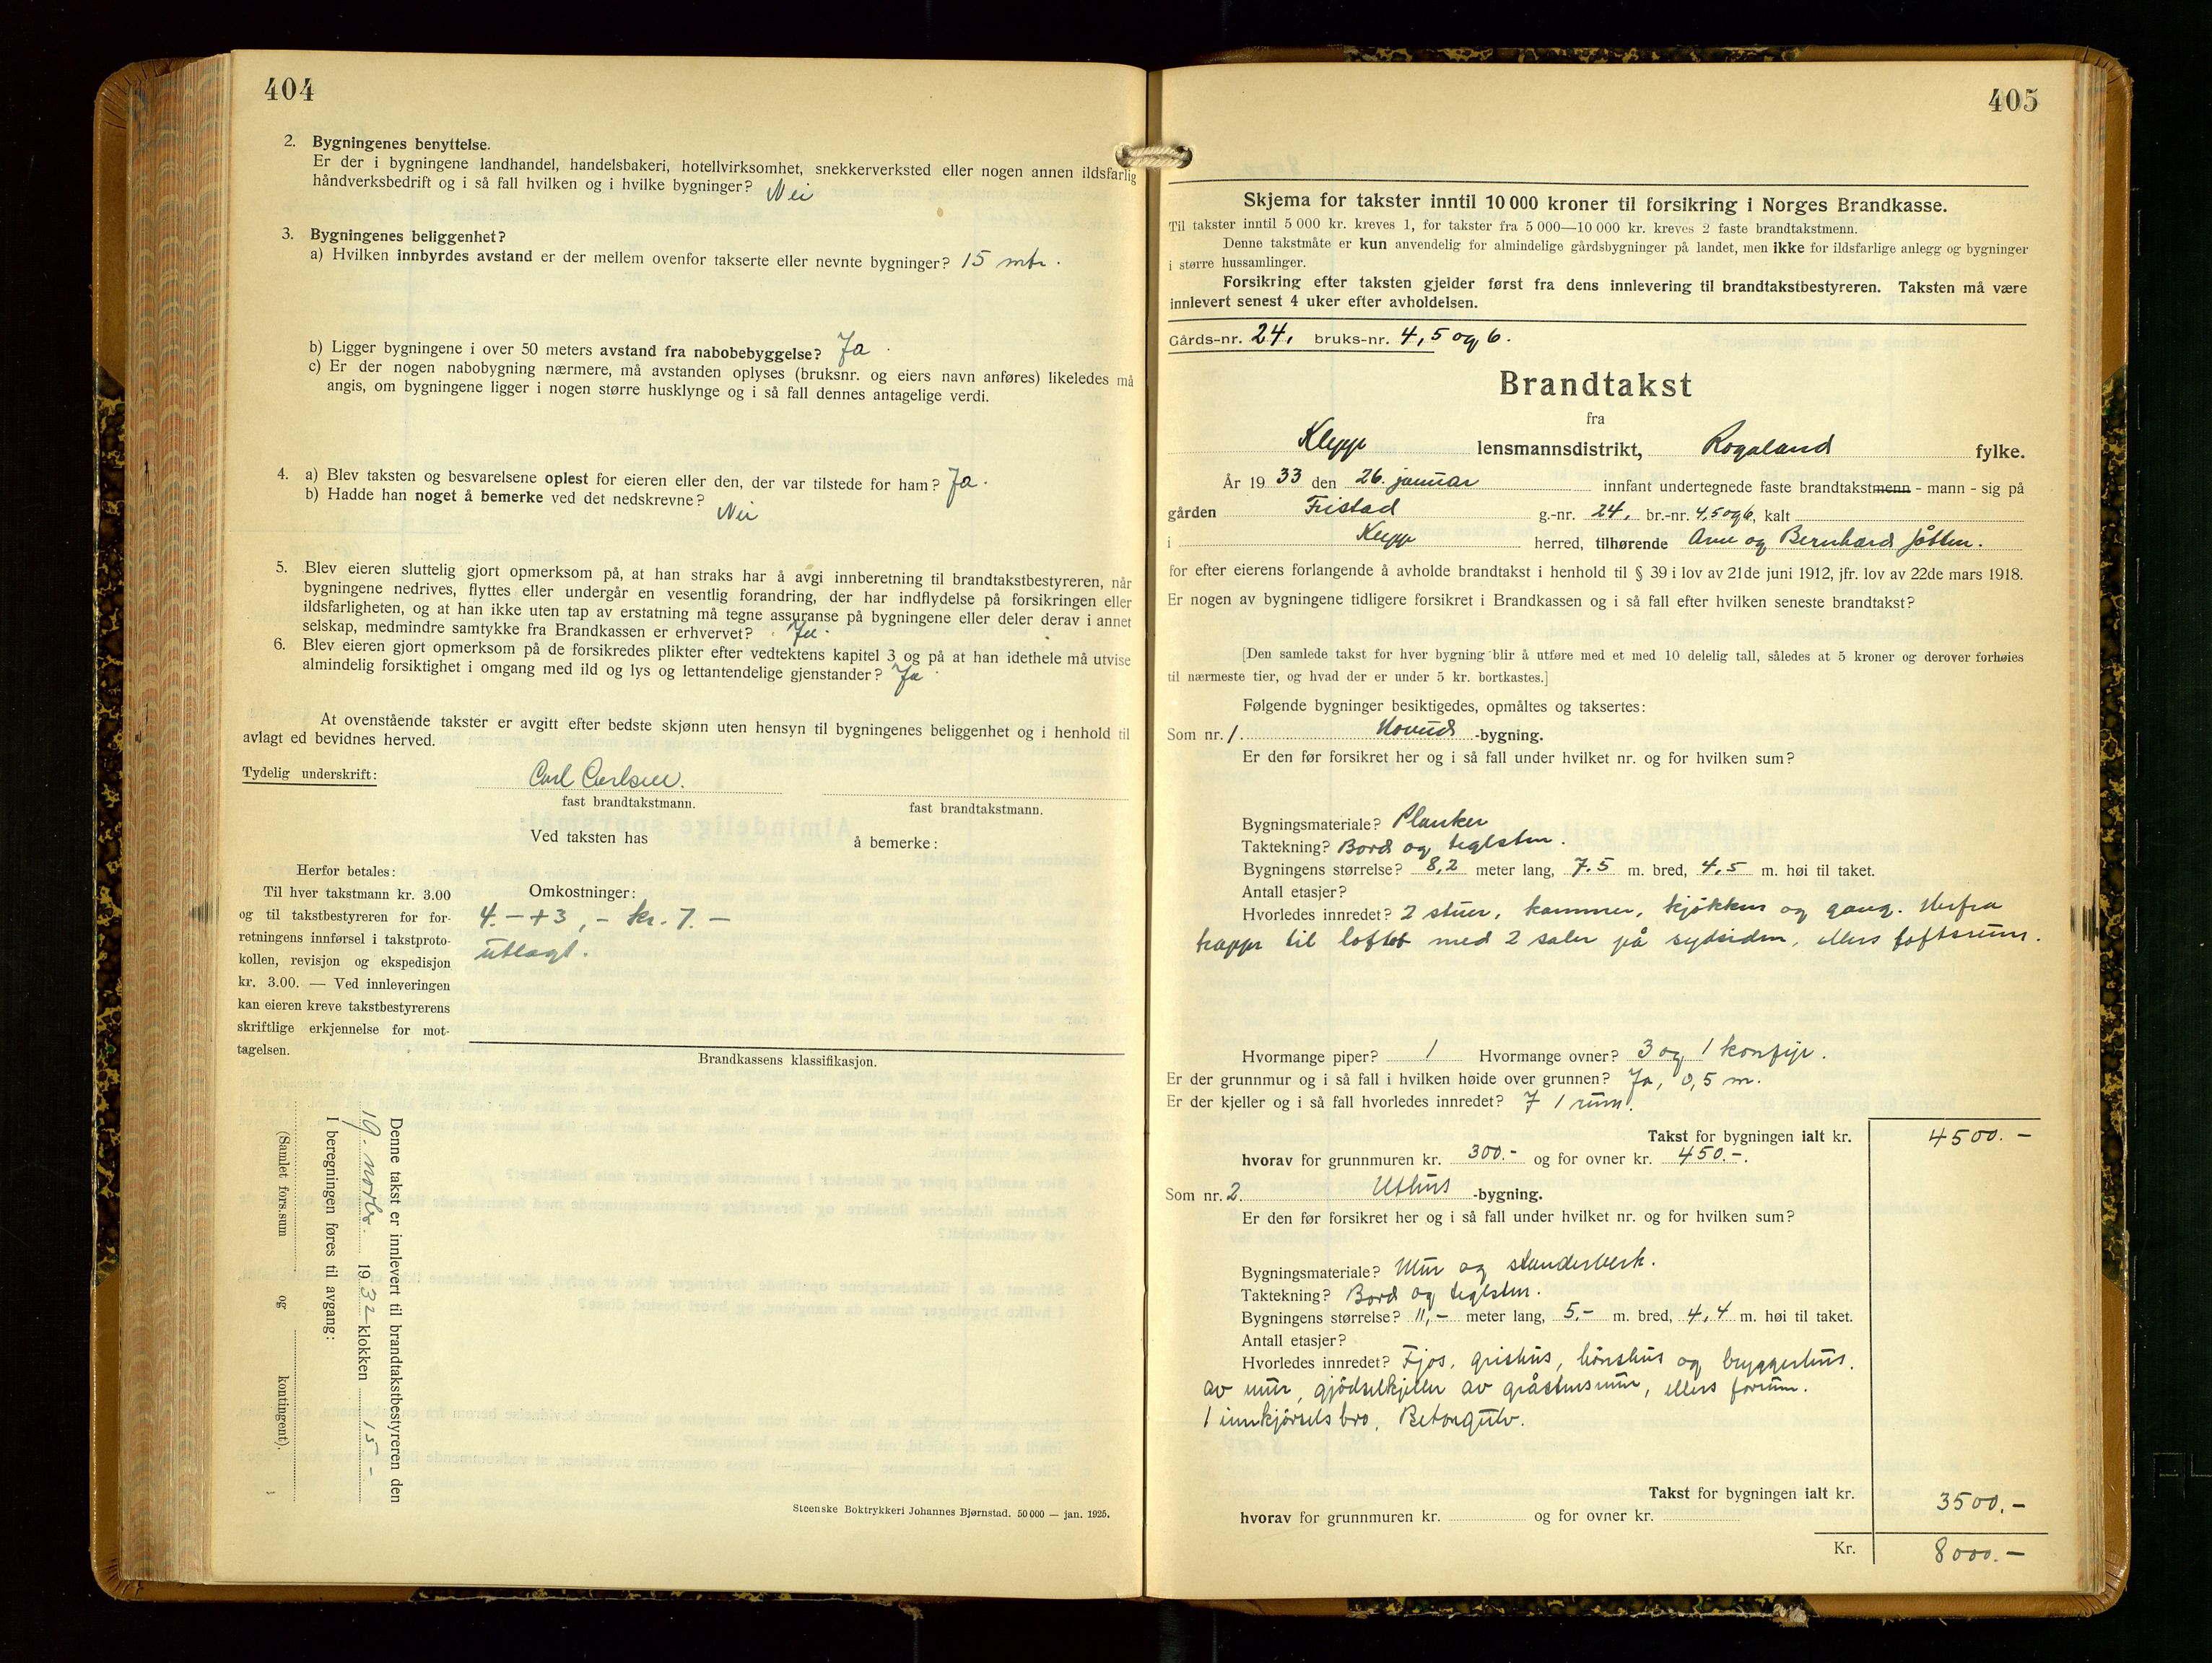 404
2. Bygningenes benyttelse.
Er der i bygningene landhandel, handelsbakeri, hotellvirksomhet, snekkerverksted eller nogen annen ildsfarlig
håndverksbedrift og i så fall hvilken og i hvilke bygninger? Nei
3. Bygningenes beliggenhet?
a) Hvilken innbyrdes avstand er der mellem ovenfor takserte eller nevnte bygninger? 15 mtr.
b) Ligger bygningene i over 50 meters avstand fra nabobebyggelse? Ja.
c) Er der nogen nabobygning nærmere, må avstanden oplyses (bruksnr. og eiers navn anføres) likeledes må
angis, om bygningene ligger i nogen større husklynge og i så fall dennes antagelige verdi.
4. a) Blev taksten og besvarelsene oplest for eieren eller den, der var tilstede for ham? Ja.
b) Hadde han noget å bemerke ved det nedskrevne?
Nei
5. Blev eieren sluttelig gjort opmerksom på, at han straks har å avgi innberetning til brandtakstbestyreren, når
bygningene nedrives, flyttes eller undergår en vesentlig forandring, der har indflydelse på forsikringen eller
ildsfarligheten, og at han ikke uten tap av erstatning må tegne assuranse på bygningene eller deler derav i annet
selskap, medmindre samtykke fra Brandkassen er erhvervet? Ja.
6. Blev eieren gjort opmerksom på de forsikredes plikter efter vedtektens kapitel 3 og på at han idethele må utvise
almindelig forsiktighet i omgang med ild og lys og lettantendelige gjenstander? Ja.
At ovenstående takster er avgitt efter bedste skjønn uten hensyn til bygningenes beliggenhet og i henhold til
avlagt ed bevidnes herved.
Tydelig underskrift:
Carl Carlsen.
fast brandtakstmann. fast brandtakstmann.
Ved taksten has å bemerke:
Herfor betales:
Til hver takstmann kr. 3.00
og til takstbestyreren for for-
retningens innførsel i takstproto-
kollen, revisjon og ekspedisjon
kr. 3.00. — Ved innleveringen
kan eieren kreve takstbestyrerens
skriftlige erkjennelse for mot-
tagelsen.
Omkostninger:
4.- + 3,- kr. 7.-
utlagt.
Brandkassens klassifikasjon.
Denne takst er innlevert til brandtakstbestyreren den
19. novbr. 1932 klokken 15-
I beregningen føres til avgang:
(Samlet fors.sum og kontingent).
Steenske Boktrykkeri Johannes Bjørnstad. 50 000 — jan. 1925.
405
Skjema for takster inntil 10 000 kroner til forsikring i Norges Brandkasse.
Til takster inntil 5 000 kr. kreves 1, for takster fra 5 000—10 000 kr. kreves 2 faste brandtakstmenn.
Denne takstmåte er kun anvendelig for almindelige gårdsbygninger på landet, men ikke for ildsfarlige anlegg og bygninger
i større hussamlinger.
Forsikring efter taksten gjelder først fra dens innlevering til brandtakstbestyreren. Taksten må være
innlevert senest 4 uker efter avholdelsen.
Gårds-nr. 24, bruks-nr. 4, 5 og 6.
Brandtakst
fra
Klepp lensmannsdistrikt, Rogaland fylke.
År 1933 den 26. januar innfant undertegnede faste brandtakstmenn - mann - sig på
gården Fristad g.-nr. 24, br.-nr. 4, 5 og 6, kalt
i Klepp herred, tilhørende Arne og Bernhard Jåtten.
for efter eierens forlangende å avholde brandtakst i henhold til § 39 i lov av 21de juni 1912, jfr. lov av 22de mars 1918.
Er nogen av bygningene tidligere forsikret i Brandkassen og i så fall efter hvilken seneste brandtakst?
[Den samlede takst for hver bygning blir å utføre med et med 10 delelig tall, således at 5 kroner og derover forhøies
til nærmeste tier, og hvad der er under 5 kr. bortkastes.]
Følgende bygninger besiktigedes, opmåltes og taksertes:
Som nr. 1. Hovuds -bygning.
Er den før forsikret her og i så fall under hvilket nr. og for hvilken sum?
Bygningsmateriale? Planker
Taktekning? Bord og teglsten.
Bygningens størrelse? 8,2 meter lang, 7.5 m. bred, 4,5 m. høi til taket.
Antall etasjer?
Hvorledes innredet? 2 stuer, kammer, kjøkken og gang. Herfra
trapper til loftet med 2 saler på sydsiden, ellers loftsrum.
Hvormange piper? 1 Hvormange ovner? 3 og 1 komfyr.
Er der grunnmur og i så fall i hvilken høide over grunnen? Ja, 0,5 m.
Er der kjeller og i så fall hvorledes innredet? 7 1 rum.
Takst for bygningen ialt kr. 4500.-
hvorav for grunnmuren kr. 300.- og for ovner kr. 450.-.
Som nr. 2. Uthus -bygning.
Er den før forsikret her og i så fall under hvilket nr. og for hvilken sum?
Bygningsmateriale? Mur og standerverk.
Taktekning? Bord og teglsten.
Bygningens størrelse? 11,- meter lang, 5,- m. bred, 4,4 m. høi til taket.
Antall etasjer?
Hvorledes innredet? Fjøs, grishus, hønshus og bryggerhus.
av mur, gjødselkjeller av gråstensmur, ellers forrum.
1 innkjørselsbro, Betongulv.
Takst for bygningen ialt kr. 3500.-
hvorav for grunnmuren kr. og for ovner kr.
Kr. 8000.-